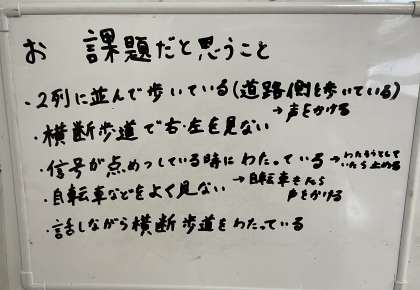 お 課題だと思うこと
・2列に並んで歩いている(道路側を歩いている)
→声をかける
・横断歩道で右・左を見ない
・信号が点めっしている時にわたっている→わたろうとしていたら止める
・自転車などをよく見ない→自転車きたら声をかける
・話しながら横断歩道をわたっている